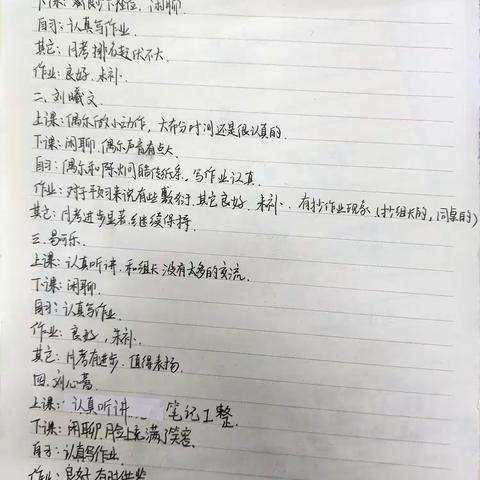 下课：很少下座位，闲聊.
自习：认真写作业
其它：月考排名起伏不大.
作业：良好. 未补.
二、刘曦文
上课：偶尔的小动作，大部分时间还是很认真的.
下课：闲聊. 偶尔声音有点大.
自习：偶尔和陈灿闫皓传纸条，写作业认真.
作业：对于平头来说有些敷衍. 其它良好. 未补. 有抄作业现象（抄组长的，同桌的）
其它：月考进步显著，继续保持.
三、易可乐.
上课：认真听讲. 和组长没有太多的交流.
下课：闲聊.
自习：认真写作业.
作业：良好，未补.
其它：月考有进步. 值得表扬.
四、刘心蕾.
上课：认真听讲... 笔记工整.
下课：闲聊. 脸上充满了笑容.
自习：认真写作业.
作业：良好. 有时供业